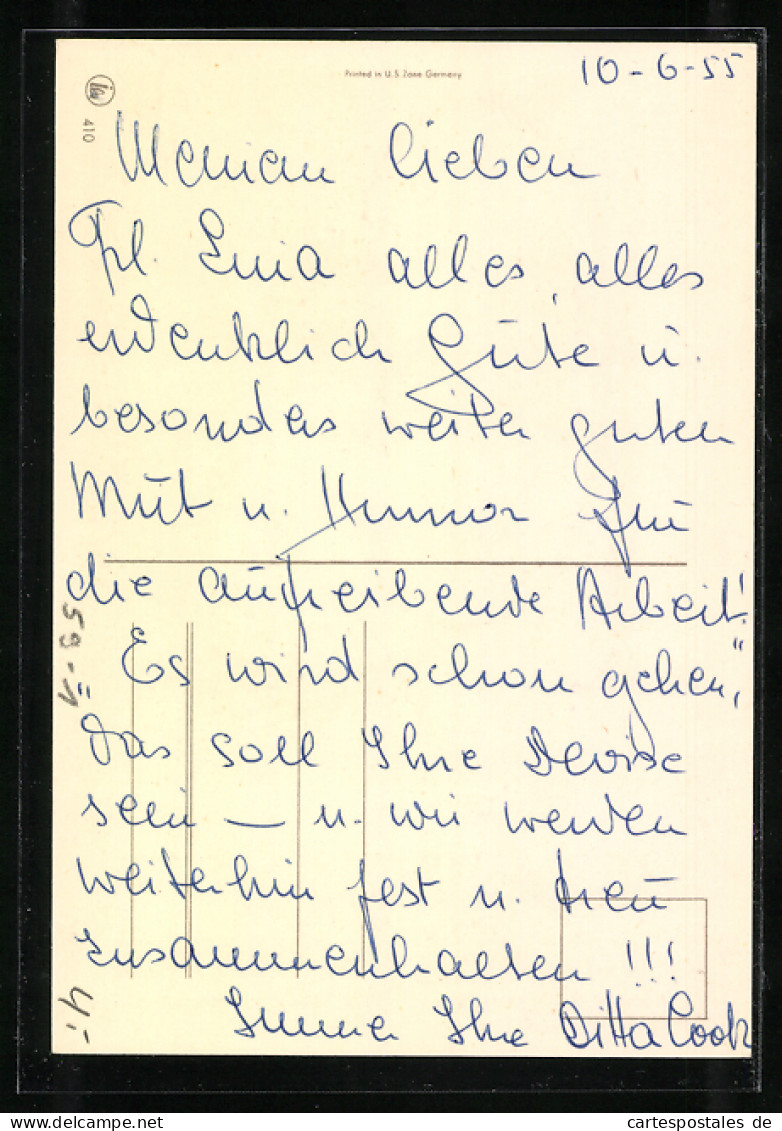 Printed in U.S. Zone Germany
10-6-55
410
Meinen lieben
Frl. alles, alles
erdenklich Gute u.
besonders weiter guten
Mut u. Humor für
die aufreibende Arbeit!
Es wird schon gehen",
das soll Ihre Devise
sein — u. wir werden
weiterhin fest u. treu
zusammenhalten !!!
Immer Ihre Ditta Cook
cartespostales de